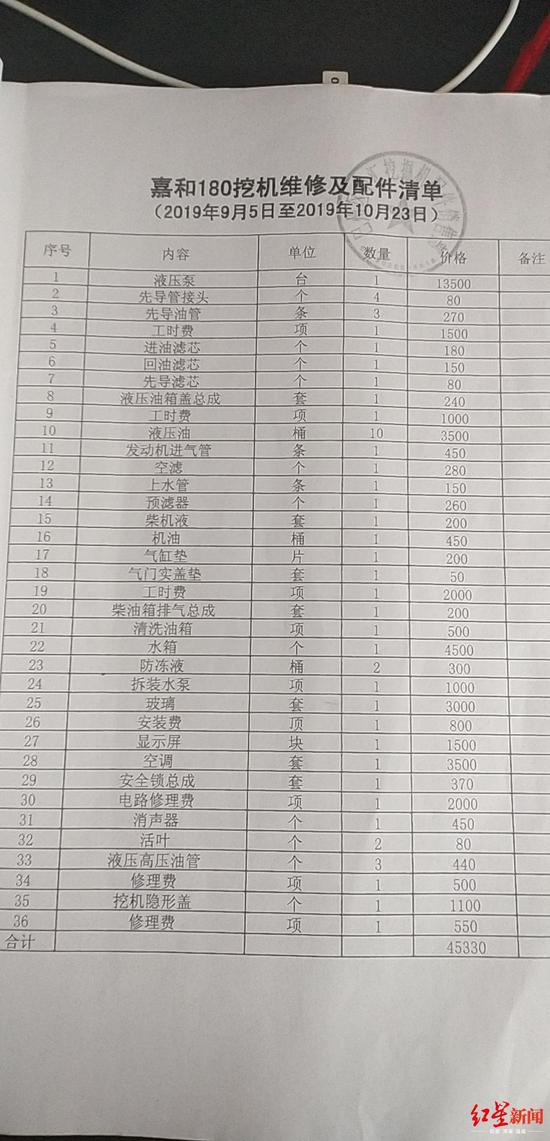 嘉和180挖机维修及配件清单
（2019年9月5日至2019年10月23日）
序号 内容 单位 数量 价格 备注
1 液压泵 台 1 13500
2 先导管接头 个 4 80
3 先导油管 条 3 270
4 工时费 项 1 1500
5 进油滤芯 个 1 180
6 回油滤芯 个 1 150
7 先导滤芯 个 1 80
8 液压油箱盖总成 套 1 240
9 工时费 项 1 1000
10 液压油 桶 10 3500
11 发动机进气管 条 1 450
12 空滤 个 1 280
13 上水管 条 1 150
14 预滤器 个 1 260
15 柴机液 套 1 200
16 机油 桶 1 450
17 气缸垫 片 1 200
18 气门实盖垫 套 1 50
19 工时费 项 1 2000
20 柴油箱排气总成 套 1 200
21 清洗油箱 项 1 500
22 水箱 个 1 4500
23 防冻液 桶 2 300
24 拆装水泵 项 1 1000
25 玻璃 套 1 3000
26 安装费 项 1 800
27 显示屏 块 1 1500
28 空调 套 1 3500
29 安全锁总成 套 1 370
30 电路修理费 项 1 2000
31 消声器 个 1 450
32 活叶 个 2 80
33 液压高压油管 个 3 440
34 修理费 项 1 500
35 挖机隐形盖 个 1 1100
36 修理费 项 1 550
合计 45330
红星新闻